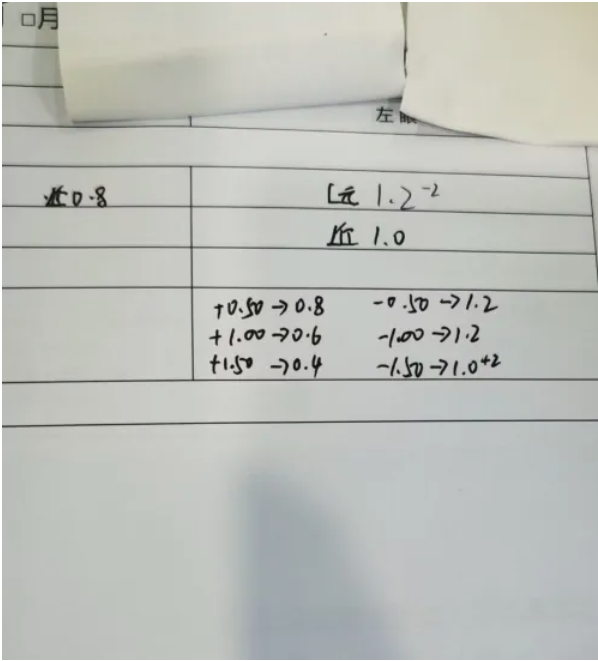 □月
左眼
近0.8
远 1.2⁻²
近 1.0
+0.50→0.8 -0.50→1.2
+1.00→0.6 -1.00→1.2
+1.50→0.4 -1.50→1.0⁺²